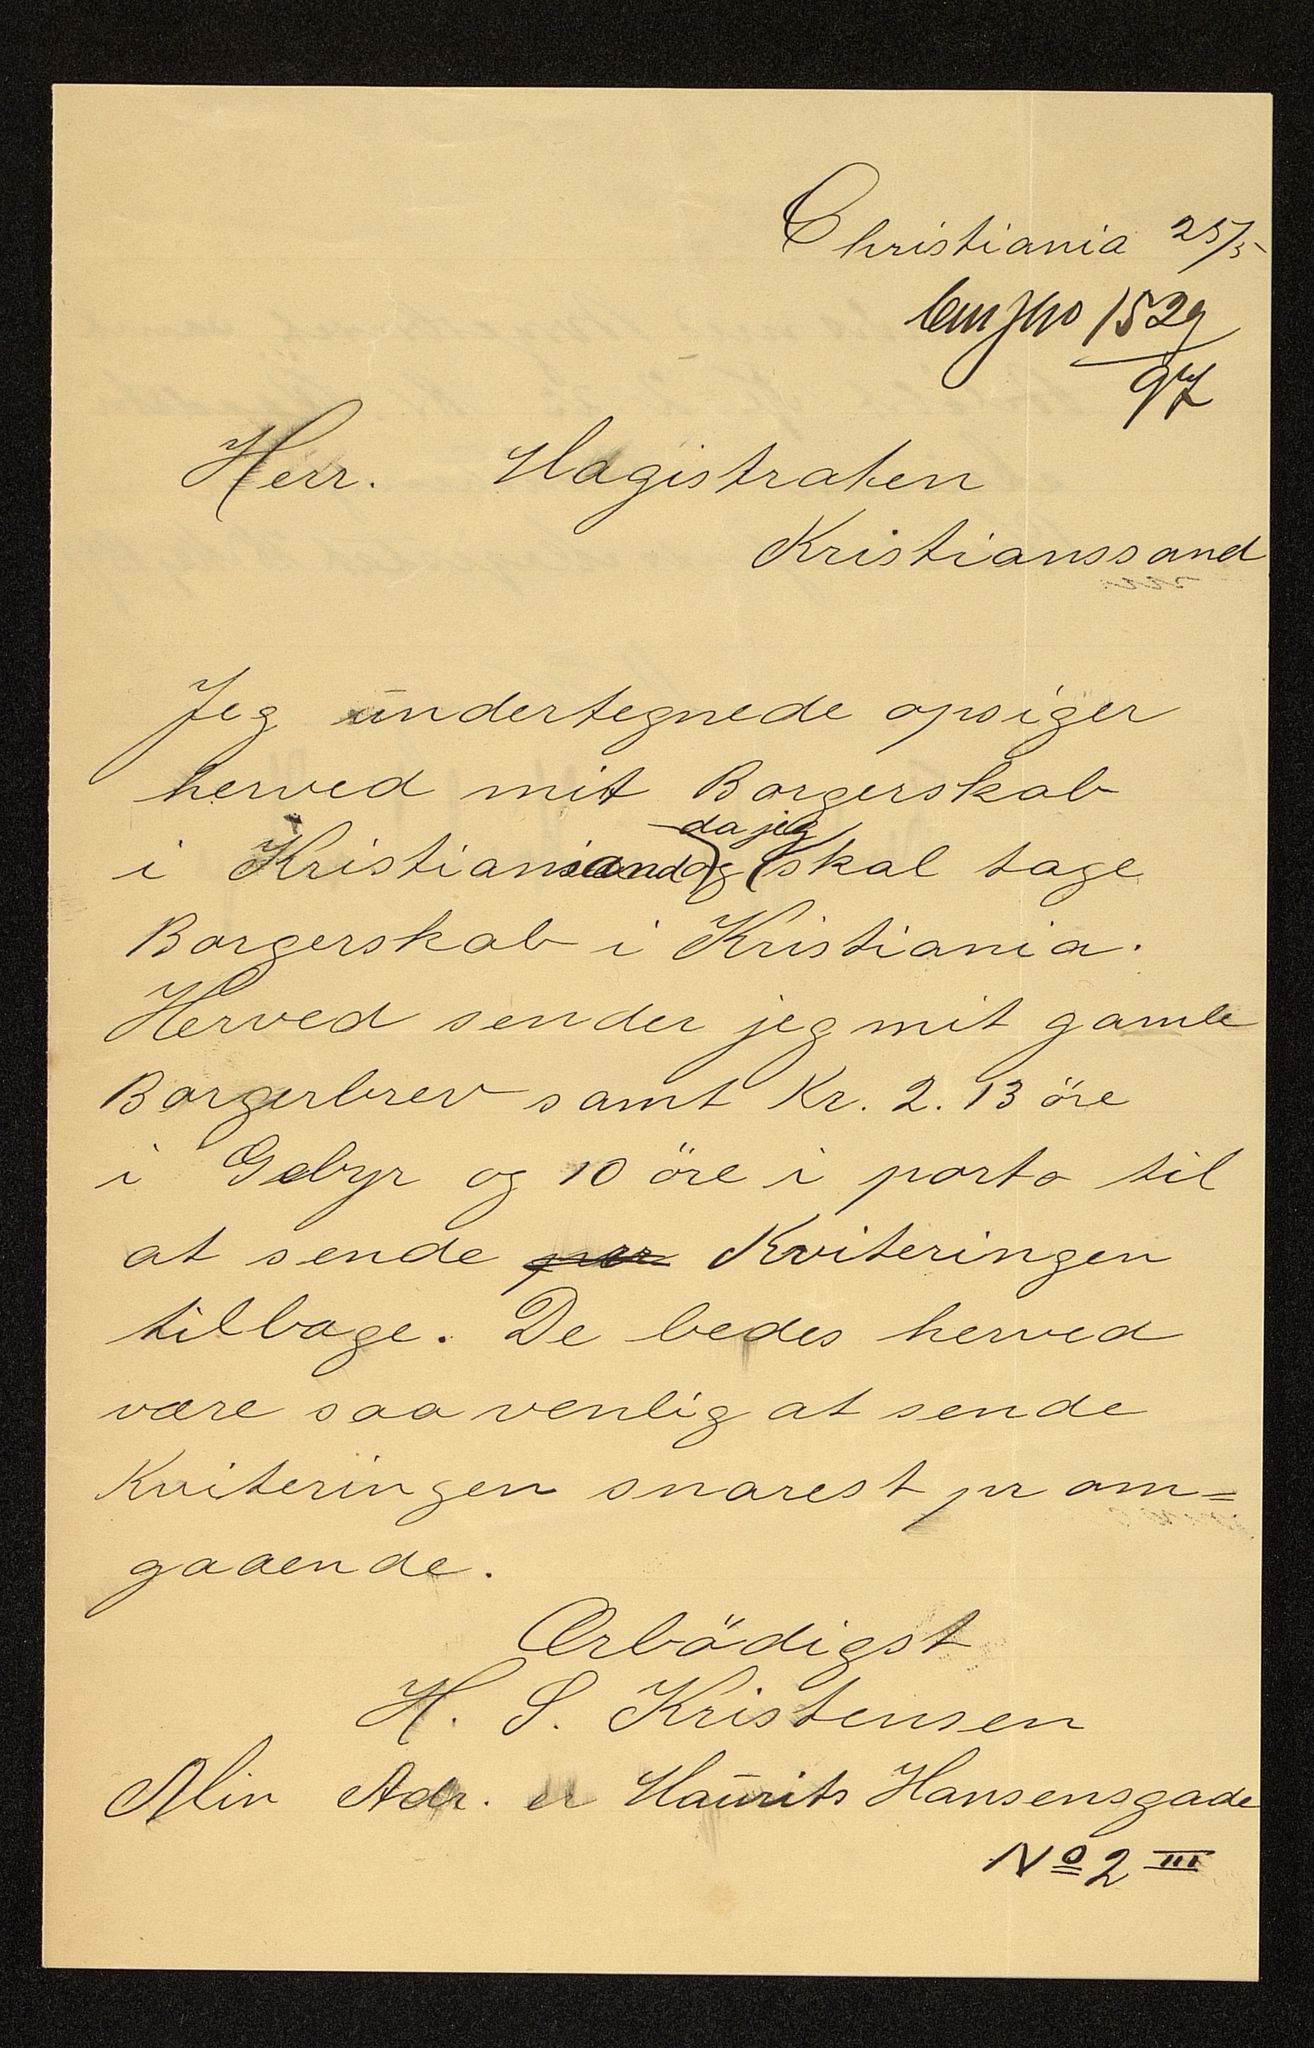 Christiania 25/5
1529
97
Herr. Magistraten
Kristianssand
Jeg undertegnede opsiger
herved mit Borgerskab
da jeg
i Kristianssand og skal tage
Borgerskab i Kristiania.
Herved sender jeg mit gamle
Borgerbrev samt Kr. 2. 13 öre
i Gebyr og 10 öre i porto til
at sende per Kviteringen
tilbage. De bedes herved
være saa venlig at sende
Kviteringen snarest pr om=
gaaende.
Ærbödigst
H. S. Kristensen
Min Adr. er Maurits Hansensgade
No 2 III